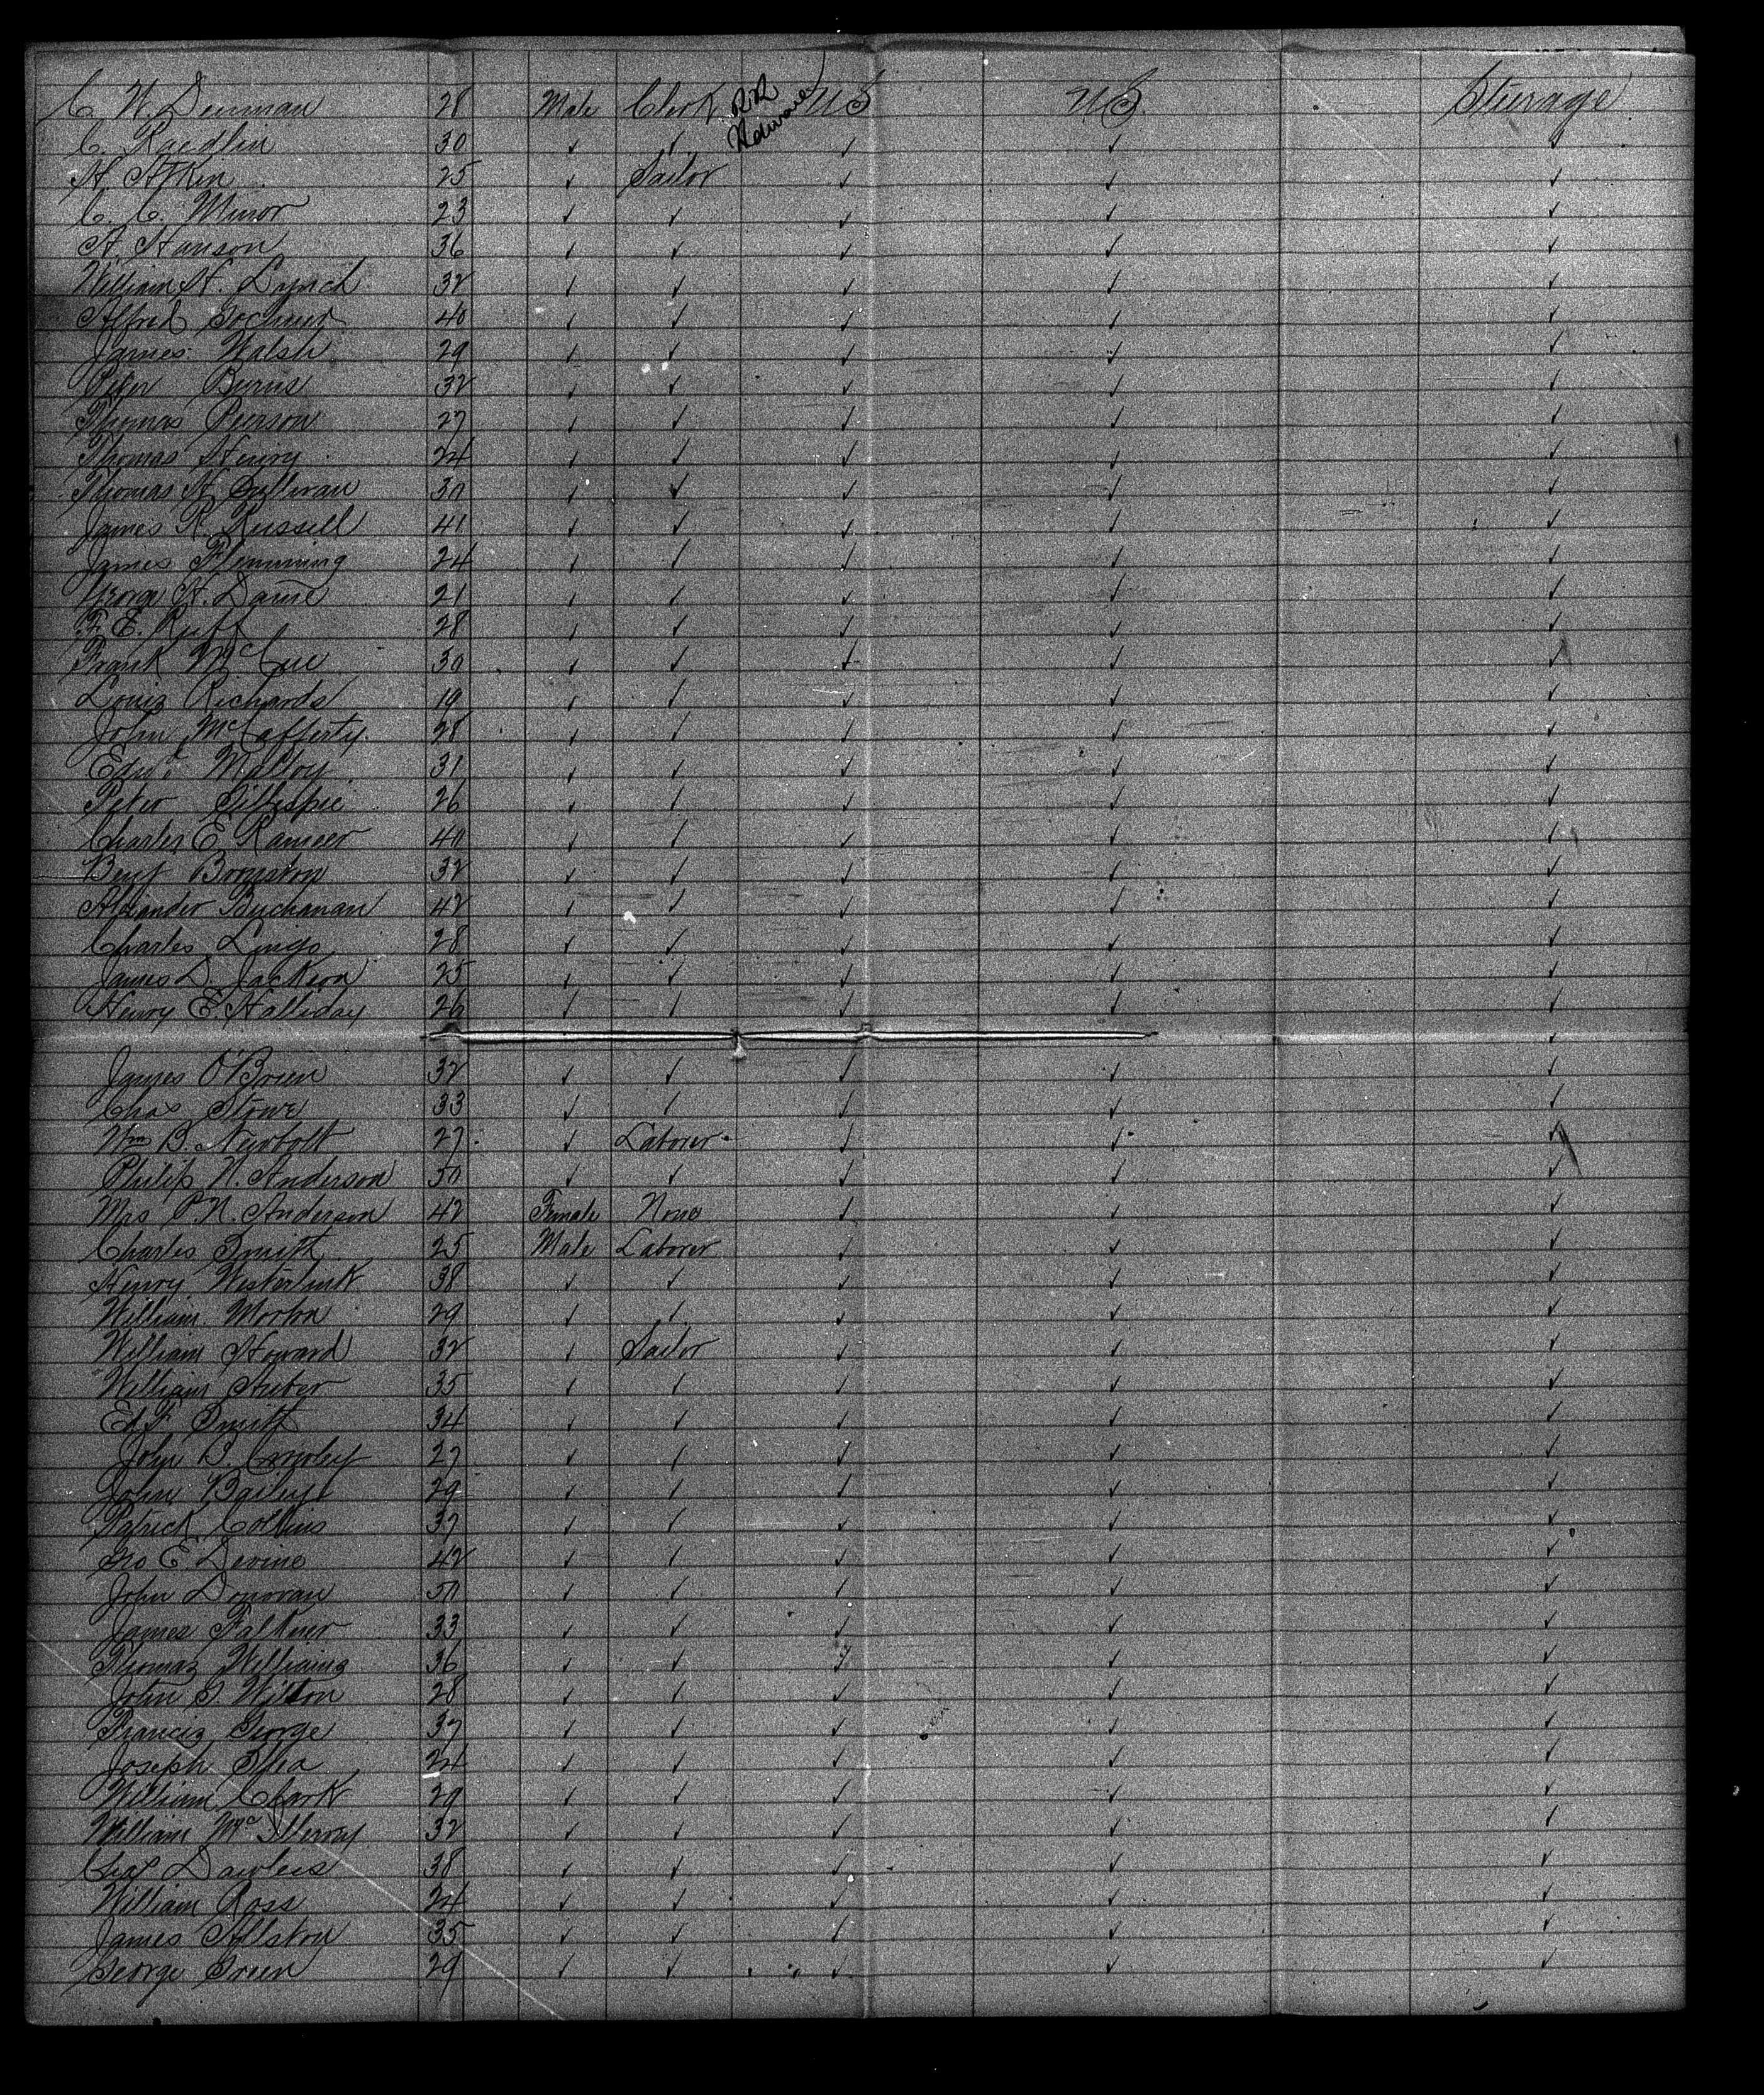 C. W. Denman 28 Male Clerk RR US US Steerage
C. Raedlin 30 ✓ ✓ ✓ ✓ ✓
H. Atkin 25 ✓ Sailor ✓ ✓ ✓
C. C. Minor 23 ✓ ✓ ✓ ✓ ✓
A. Hanson 36 ✓ ✓ ✓ ✓ ✓
William H. Lynch 32 ✓ ✓ ✓ ✓ ✓
Alfred 40 ✓ ✓ ✓ ✓ ✓
James Walsh 29 ✓ ✓ ✓ ✓ ✓
Peter Burns 32 ✓ ✓ ✓ ✓ ✓
Thomas Peerson 27 ✓ ✓ ✓ ✓ ✓
Thomas Henry 24 ✓ ✓ ✓ ✓ ✓
Thomas H. Sullivan 30 ✓ ✓ ✓ ✓ ✓
James R. Russell 41 ✓ ✓ ✓ ✓ ✓
James Flemming 24 ✓ ✓ ✓ ✓ ✓
George H. Dame 21 ✓ ✓ ✓ ✓ ✓
F. E. Ruff 28 ✓ ✓ ✓ ✓ ✓
Frank McCue 30 ✓ ✓ ✓ ✓ ✓
Louis Richards 19 ✓ ✓ ✓ ✓ ✓
John McCafferty 28 ✓ ✓ ✓ ✓ ✓
Edwd Malloy 31 ✓ ✓ ✓ ✓ ✓
Peter Gillespie 26 ✓ ✓ ✓ ✓ ✓
Charles E. Rameer 40 ✓ ✓ ✓ ✓ ✓
Benj Bornston 32 ✓ ✓ ✓ ✓ ✓
Alexander Buchanan 42 ✓ ✓ ✓ ✓ ✓
Charles Lingo 28 ✓ ✓ ✓ ✓ ✓
James D. Jackson 25 ✓ ✓ ✓ ✓ ✓
Henry E. Halliday 26 ✓ ✓ ✓ ✓ ✓
✓
James O'Brien 32 ✓ ✓ ✓ ✓ ✓
Chas Stowe 33 ✓ ✓ ✓ ✓ ✓
Wm B. Newbolt 27 ✓ Laborer ✓ ✓ ✓
Philip N. Anderson 50 ✓ ✓ ✓ ✓ ✓
Mrs P. N. Anderson 42 Female None ✓ ✓ ✓
Charles Smith 25 Male Laborer ✓ ✓ ✓
Henry Westerlink 38 ✓ ✓ ✓ ✓ ✓
William Morton 29 ✓ ✓ ✓ ✓ ✓
William Howard 32 ✓ Sailor ✓ ✓ ✓
William Huber 35 ✓ ✓ ✓ ✓ ✓
Ed F. Smith 34 ✓ ✓ ✓ ✓ ✓
John B. Crowley 27 ✓ ✓ ✓ ✓ ✓
John Bailey 29 ✓ ✓ ✓ ✓ ✓
Patrick Collins 37 ✓ ✓ ✓ ✓ ✓
Jno E. Devine 42 ✓ ✓ ✓ ✓ ✓
John Donovan 50 ✓ ✓ ✓ ✓ ✓
James Falkner 33 ✓ ✓ ✓ ✓ ✓
Thomas Williams 36 ✓ ✓ ✓ ✓ ✓
John S. Wilson 28 ✓ ✓ ✓ ✓ ✓
Francis George 37 ✓ ✓ ✓ ✓ ✓
Joseph Shea 24 ✓ ✓ ✓ ✓ ✓
William Clark 29 ✓ ✓ ✓ ✓ ✓
William McIllervy 32 ✓ ✓ ✓ ✓ ✓
Chas Dawless 38 ✓ ✓ ✓ ✓ ✓
William Ross 24 ✓ ✓ ✓ ✓ ✓
James Allston 35 ✓ ✓ ✓ ✓ ✓
George Green 29 ✓ ✓ ✓ ✓ ✓